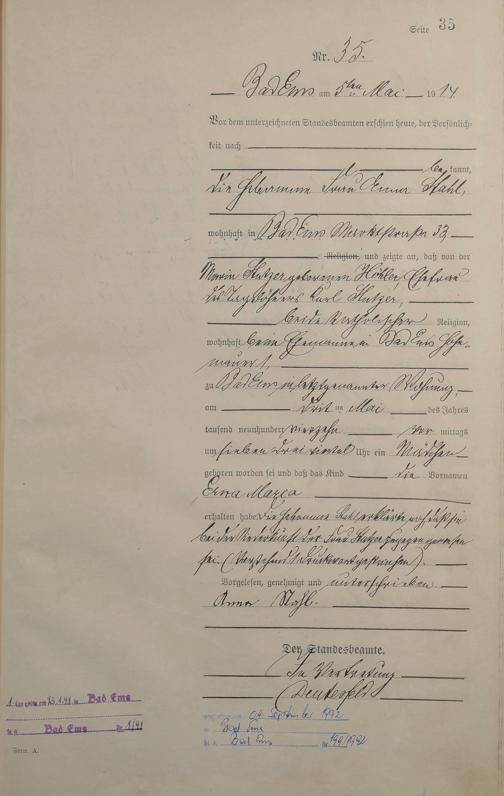 Seite 35
Nr. 35.
Bad Ems am 5ten Mai 1914.
Vor dem unterzeichneten Standesbeamten erschien heute, der Persönlich-
keit nach
bekannt,
die Hebamme Frau Anna Stahl,
wohnhaft in Bad Ems Marktstraße 32
Religion, und zeigte an, daß von der
Maria Hutzer geborenen Höhler, Ehefrau
des Tagelöhners Karl Hutzer,
beide katholischer Religion,
wohnhaft beim Ehemanne in Bad Ems
mauer 1,
zu Bad Ems in letztgenannter Wohnung,
am drit ten Mai des Jahres
tausend neunhundert vierzehn vor mittags
um sieben drei viertel Uhr ein Mädchen
geboren worden sei und daß das Kind die Vornamen
Erna Maria
erhalten habe. Die Hebamme Stahl erklärte noch daß sie
bei der Niederkunft der Frau Hutzer zugegen gewesen
sei. (Vorstehend 1 Druckwort gestrichen).
Vorgelesen, genehmigt und unterschrieben
Anna Stahl.
Der Standesbeamte.
In Vertretung
1. 13.1.41 in Bad Ems
Bad Ems Nr. 1/41
04. September 1992
Bad Ems
Bad Ems
Form. A.